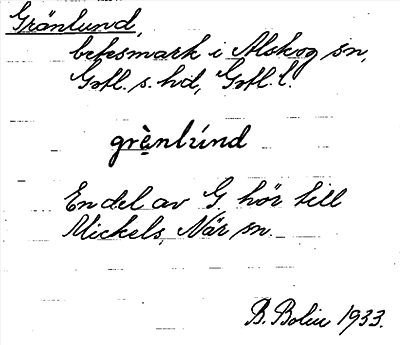 Gränlund,
betesmark i Alskog sn,
Gotl. s. hd, Gotl. l.
grè̞nlúnd
En del av G. hör till
Mickels, När sn.
B. Bolin 1933.